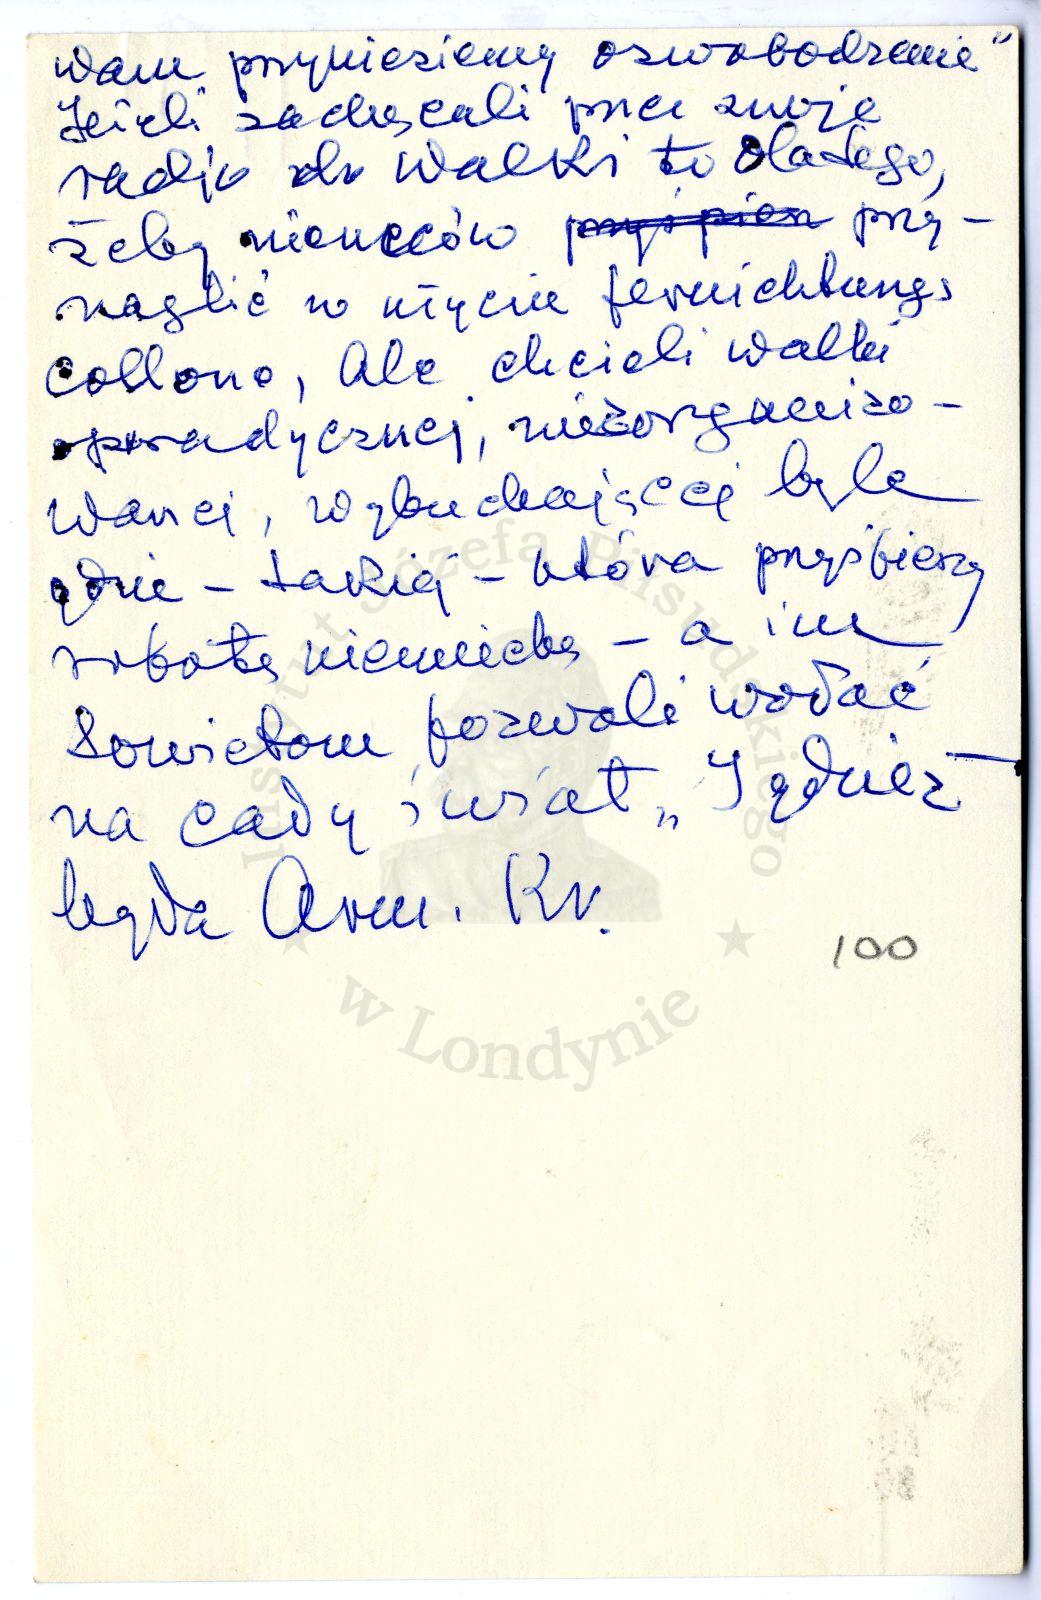 wam przyniesiemy oswobodzenie"
Jeżeli zachęcali prez swoje
radjo do walki to dlatego,
żeby niemców przyśpien przy-
naglić w użyciu fernichtungs
collone, Ale chcieli walki
sporadycznej, niezorganizo-
wanej, wybuchającej byle
gdzie – takiej – która przyśpieszy
robotę niemiecką – a im
Sowietom pozwoli wołać
na cały świat „I gdzież
była Arm. Kr.
100
Instytut Józefa Piłsudskiego
w Londynie